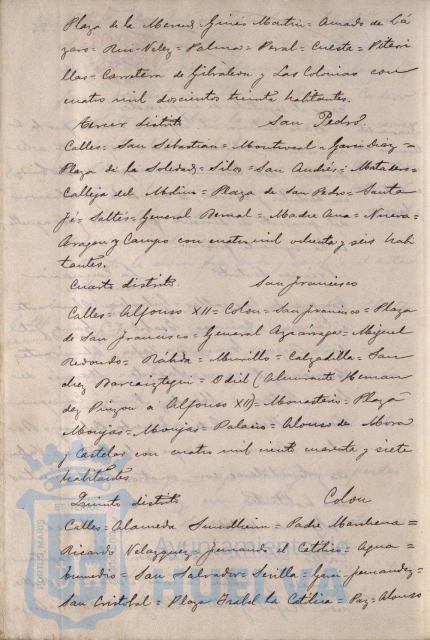 Plaza de la Merced = Ginés Martin = Amado de Lá
zaro = Ruiz Velez = Palma = Peral = Cuesta =
llas = Carretera de Gibraleon y Las Colonias con
cuatro mil doscientos treinta habitantes.
Tercer distrito San Pedro
Calles = San Sebastian = Montrocal = Garci Diaz =
Plaza de la Soledad = Silos = San Andrés = Matadero =
Calleja del Molino = Plaza de San Pedro = Santa
Fé = Saltés = General Bernal = Madre Ana = Nueva =
Aragon y Campo con cuatro mil ochenta y seis habi
tantes.
Cuarto distrito San Francisco
Calles = Alfonso XII = Colon = San Francisco = Plaza
de San Francisco = General Azcárraga = Miguel
Redondo = Rábida = Murillo = Calzadilla = San
chez Barcaiztegui = Odiel (Almirante Hernan
dez Pinzon a Alfonso XII) = Monasterio = Plaza
Monjas = Monjas = Palacio = Alonso de Mora
y Castelar con cuatro mil ciento cuarenta y siete
habitantes
Quinto distrito Colon
Calles = Alameda Sundheim = Padre Marchena =
Ricardo Velazquez = Fernando el Católico = Agua =
Enmedio = San Salvador = Sevilla = Garci Fernandez =
San Cristobal = Plaza Isabel la Católica = Paz = Alonso
Ayuntamiento de
HUELVA
PORTUS MARIS